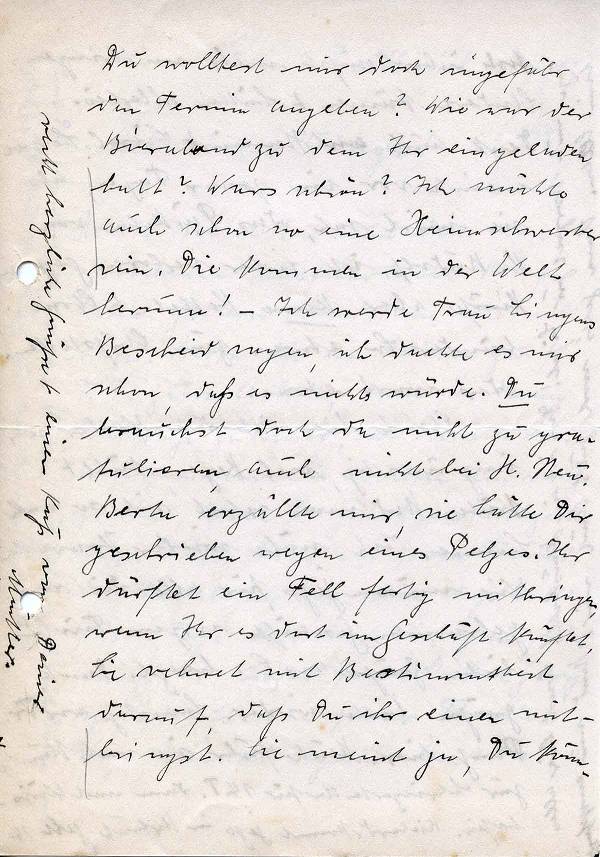 Du wolltest mir doch ungefähr
den Termin angeben? Wie war der
Bierabend zu dem Ihr eingeladen
hatt? Wars schön? Ich möchte
auch schon so eine Heimschwester
sein. Die kommen in der Welt
herum! – Ich werde Frau Lingens
Bescheid sagen, ich dachte es mir
schon, daß es nichts würde. Du
brauchst doch da nicht zu gra-
tulieren, auch nicht bei H. Neu.
Berta erzählte mir, sie hätte Dir
geschrieben wegen eines Pelzes. Ihr
dürftet ein Fell fertig mitbringen,
wenn Ihr es dort im Geschäft kauftet,
Sie rechnet mit Bestimmtheit
darauf, daß Du ihr einen mit-
bringst. Sie meint ja, Du könn-
recht herzliche Grüße u. einen Kuß von Deiner
Mutter.